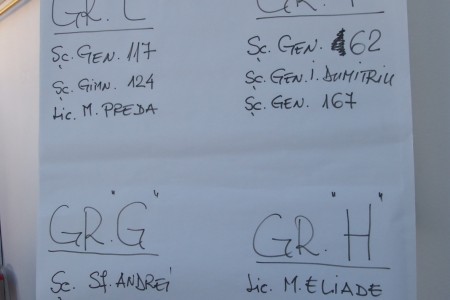 GR.
Șc. GEN. 117
Șc. GIMN. 124
Lic. M. PREDA
GR.
Șc. GEN. 62
Șc. GEN. I. DUMITRIU
Șc. GEN. 167
GR. "G"
Șc. Sf. ANDREI
GR. "H"
Lic. M. ELIADE